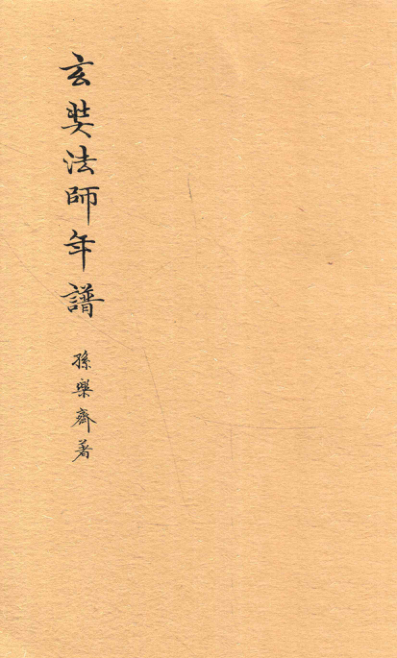 玄奘法師年譜
孫樂齊著